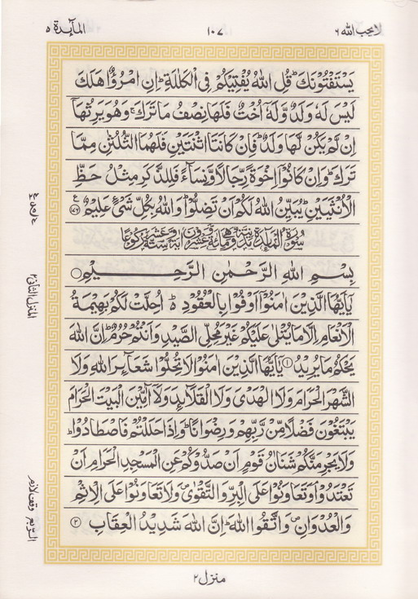 لا يحب الله ٦
١٠٧
المآئدة ٥
يَسْتَفْتُوْنَكَ ؕ قُلِ اللّٰهُ يُفْتِيْكُمْ فِي الْكَلٰلَةِ ؕ اِنِ امْرُؤٌا هَلَكَ
لَيْسَ لَهٗ وَلَدٌ وَّلَهٗۤ اُخْتٌ فَلَهَا نِصْفُ مَا تَرَكَ ۚ وَهُوَ يَرِثُهَاۤ
اِنْ لَّمْ يَكُنْ لَّهَا وَلَدٌ ؕ فَاِنْ كَانَتَا اثْنَتَيْنِ فَلَهُمَا الثُّلُثٰنِ مِمَّا
تَرَكَ ؕ وَاِنْ كَانُوْۤا اِخْوَةً رِّجَالًا وَّنِسَآءً فَلِلذَّكَرِ مِثْلُ حَظِّ
الْاُنْثَيَيْنِ ؕ يُبَيِّنُ اللّٰهُ لَكُمْ اَنْ تَضِلُّوْا ؕ وَاللّٰهُ بِكُلِّ شَيْءٍ عَلِيْمٌ
بِسْمِ اللّٰهِ الرَّحْمٰنِ الرَّحِيْمِ ○
يٰۤاَيُّهَا الَّذِيْنَ اٰمَنُوْۤا اَوْفُوْا بِالْعُقُوْدِ ؕ اُحِلَّتْ لَكُمْ بَهِيْمَةُ
الْاَنْعَامِ اِلَّا مَا يُتْلٰى عَلَيْكُمْ غَيْرَ مُحِلِّى الصَّيْدِ وَاَنْتُمْ حُرُمٌ ؕ اِنَّ اللّٰهَ
يَحْكُمُ مَا يُرِيْدُ ۝١ يٰۤاَيُّهَا الَّذِيْنَ اٰمَنُوْا لَا تُحِلُّوْا شَعَآئِرَ اللّٰهِ وَلَا
الشَّهْرَ الْحَرَامَ وَلَا الْهَدْيَ وَلَا الْقَلَآئِدَ وَلَاۤ آٰمِّيْنَ الْبَيْتَ الْحَرَامَ
يَبْتَغُوْنَ فَضْلًا مِّنْ رَّبِّهِمْ وَرِضْوَانًا ؕ وَاِذَا حَلَلْتُمْ فَاصْطَادُوْا ؕ
وَلَا يَجْرِمَنَّكُمْ شَنَاٰنُ قَوْمٍ اَنْ صَدُّوْكُمْ عَنِ الْمَسْجِدِ الْحَرَامِ اَنْ
تَعْتَدُوْا ۘ وَتَعَاوَنُوْا عَلَى الْبِرِّ وَالتَّقْوٰى ۪ وَلَا تَعَاوَنُوْا عَلَى الْاِثْمِ
وَالْعُدْوَانِ ۪ وَاتَّقُوا اللّٰهَ ؕ اِنَّ اللّٰهَ شَدِيْدُ الْعِقَابِ ۝٢
المنزل الثاني ٢
الربع
وقف لازم
منزل ٢